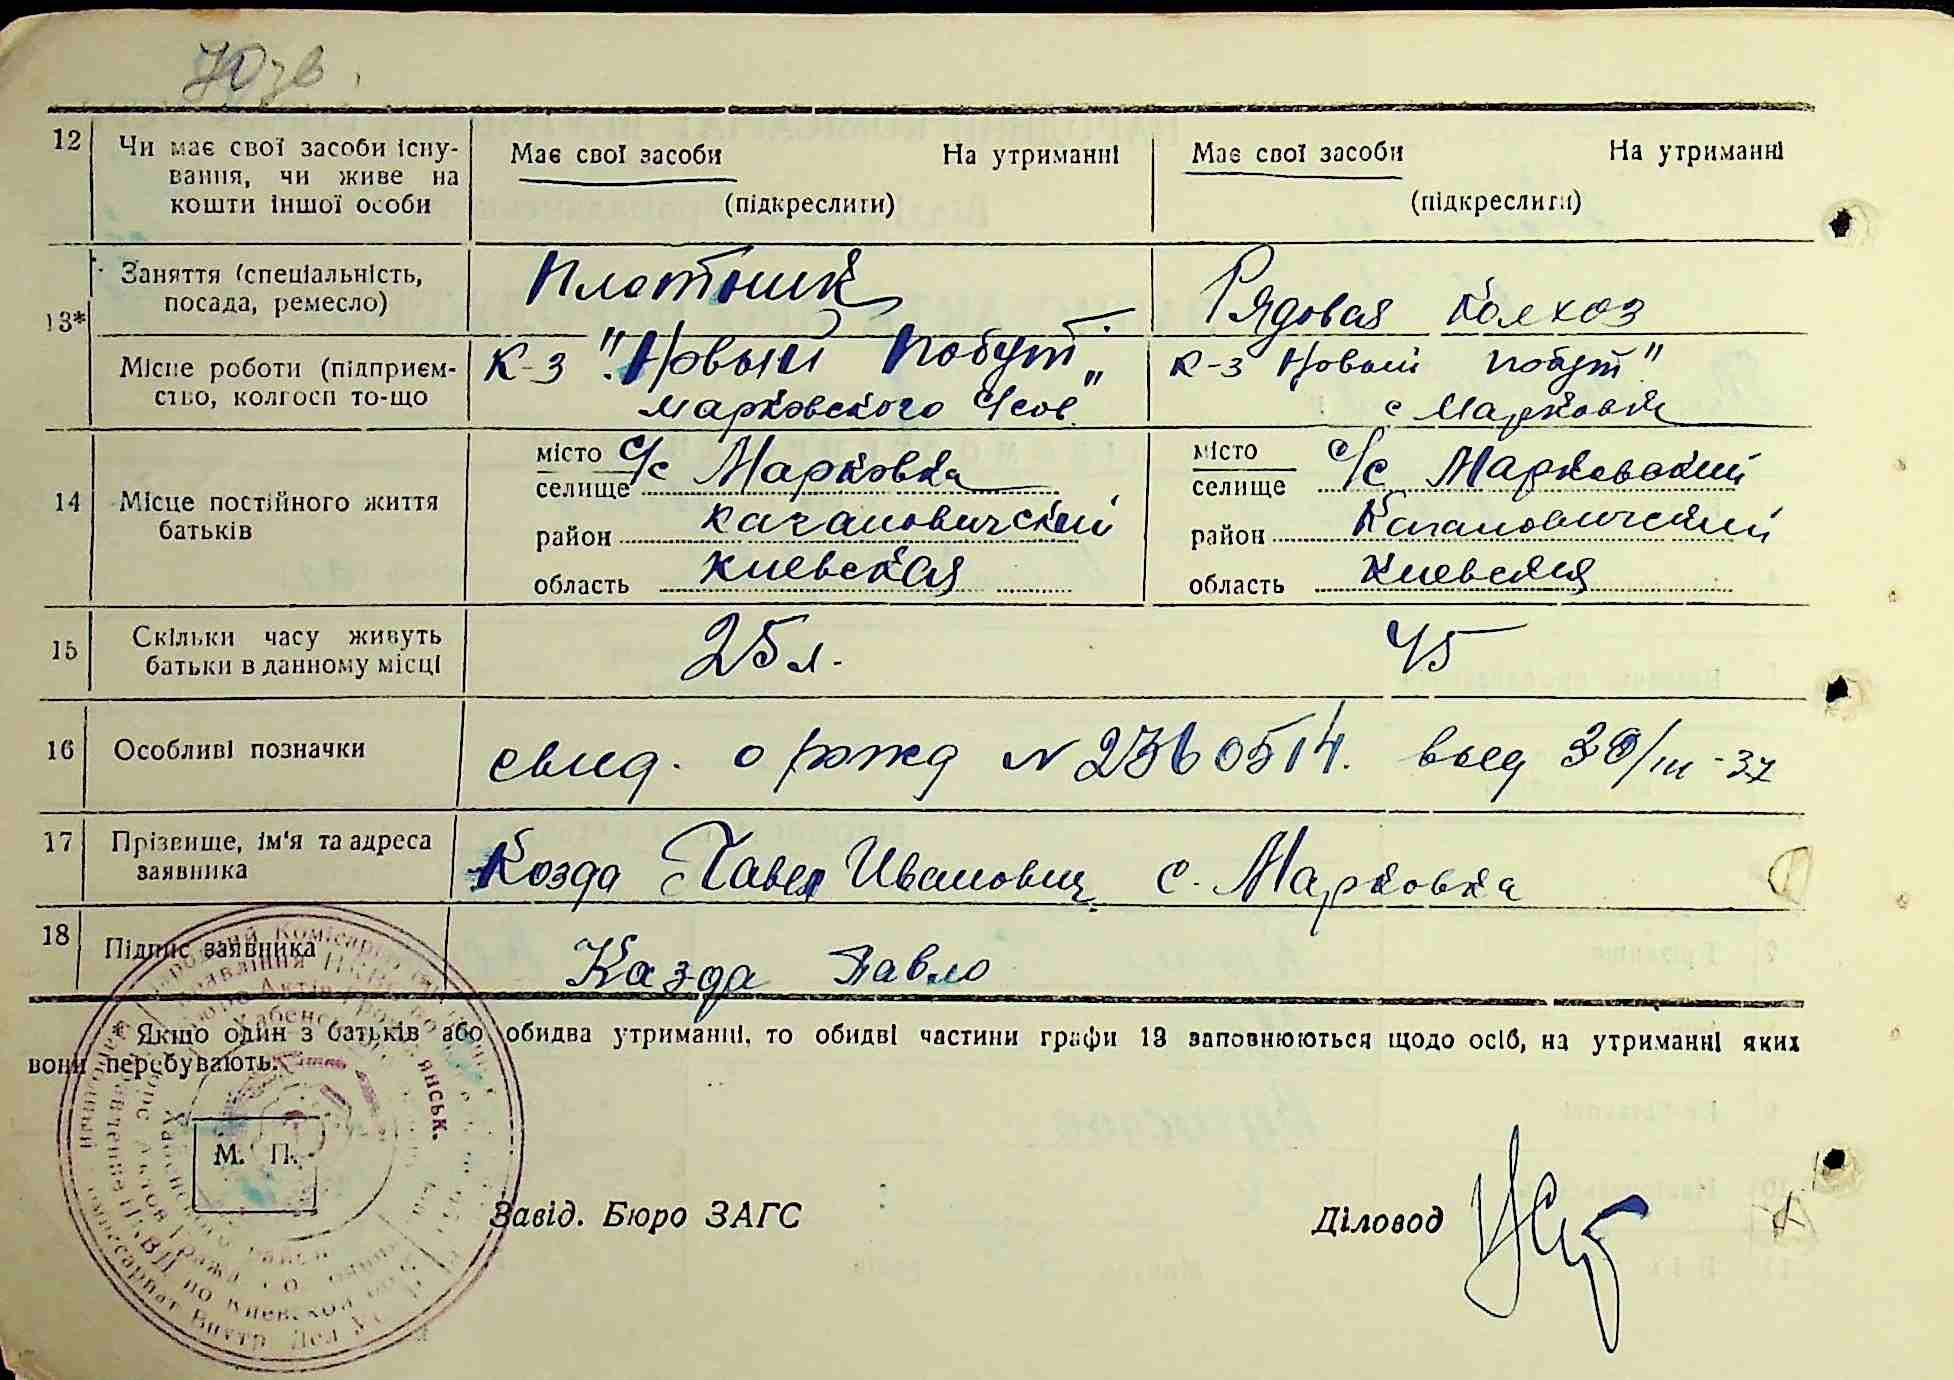 70 зв.
12 Чи має свої засоби існу- Має свої засоби На утриманні Має свої засоби На утриманні
вання, чи живе на
кошти іншої особи (підкреслити) (підкреслити)
13* Заняття (спеціальність, Плотник Рядовая колхоз
посада, ремесло)
Місце роботи (підприєм- К-з "Новый Побут" к-з Новый побут"
ство, колгосп то-що Марковского с/сов. с Марковка
14 Місце постійного життя батьків
місто с/с Марковка місто с/с Марковский
селище селище
район Кагановичский район Кагановичский
область Киевская область Киевская
15 Скільки часу живуть 25 л. 45
батьки в данному місці
16 Особливі позначки свид. о рожд N 2360514. выд 30/III-37
17 Прізвище, ім'я та адреса Козда Павел Иванович с. Марковка
заявника
18 Підпис заявника Казда Павло
* Якщо один з батьків або обидва утриманні, то обидві частини графи 13 заповнюються щодо осіб, на утриманні яких
вони перебувають.
М. П.
Завід. Бюро ЗАГС Діловод